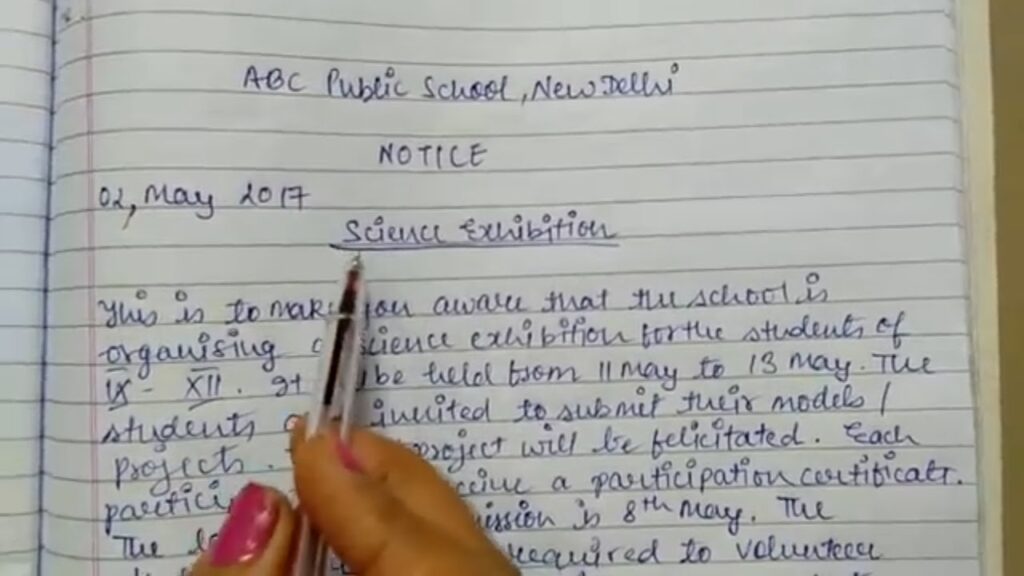 ABC Public School, New Delhi
NOTICE
02, May 2017
Science Exhibition
This is to make you aware that the school is
organising science exhibition for the students of
IX - XII. It be held from 11 May to 13 May. The
students invited to submit their models /
projects. project will be felicitated. Each
a participation certificate.
is 8th May. The
The required to volunteer